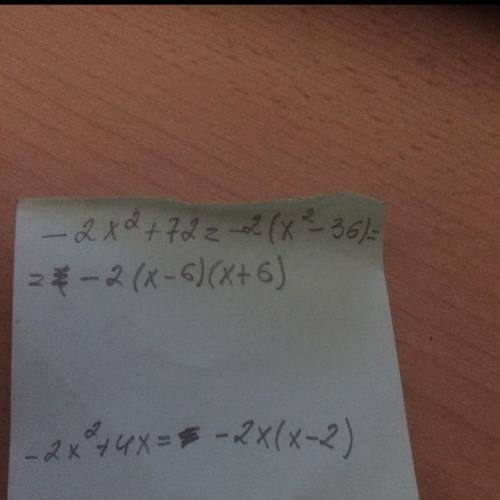 -2x²+72=-2(x²-36)=
=-2(x-6)(x+6)
-2x²+4x=-2x(x-2)